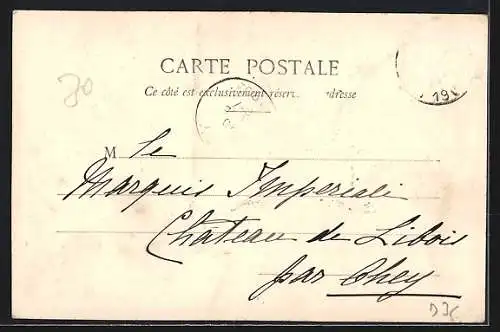 CARTE POSTALE
Ce côté est exclusivement réservé adresse
M le
Marquis Imperiali
Château de Libois
par Ohey